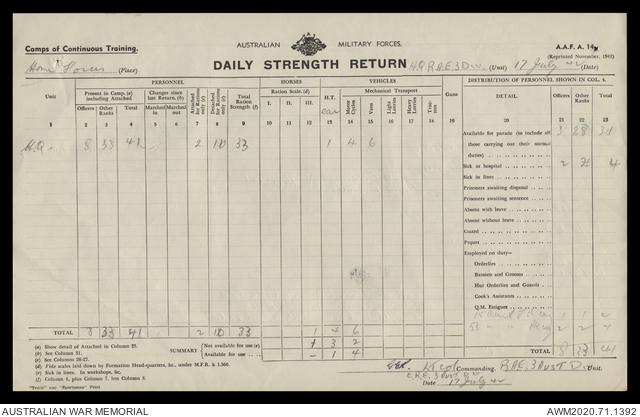 Camps of Continuous Training.
AUSTRALIAN MILITARY FORCES.
A.A.F. A. 14
(Reprinted November, 1941)
Home Forces (Place)
DAILY STRENGTH RETURN
H.Q R.A.E. 3 Div. (Unit) 17 July 42 (Date)
PERSONNEL
HORSES
VEHICLES
DISTRIBUTION OF PERSONNEL SHOWN IN COL. 4.
Unit
Present in Camp. (a) including Attached
Changes since last Return. (b)
Attached for Rations only (c)
Detached for Rations only (c)
Total Ration Strength (f)
Ration Scale. (d)
H.T.
Mechanical Transport
Guns
DETAIL
Officers
Other Ranks
Total
Marched in
Marched out
I.
II.
III.
car
Motor Cycles
Vans
Light Lorries
Heavy Lorries
Tractors
Officers
Other Ranks
Total
1 2 3 4 5 6 7 8 9 10 11 12 13 14 15 16 17 18 19 20 21 22 23
H.Q. 8 33 41 2 10 33 1 4 6
Available for parade (to include all 3 28 31
those carrying out their normal
duties)
Sick in hospital 2 2 4
Sick in lines
Prisoners awaiting disposal
Prisoners awaiting sentence
Absent with leave
Absent without leave
Guard
Piquet
Employed on duty—
Orderlies
Batmen and Grooms
Hut Orderlies and Guards
Cook's Assistants
Q.M. Fatigues
1 1 2
2 2 4
TOTAL 8 33 41 2 10 33 1 4 6
TOTAL 8 33 41
(a) Show detail of Attached in Column 25.
(b) See Column 31.
(c) See Columns 26-27.
(d) Vide scales laid down by Formation Head-quarters, &c., under M.F.R. & I.366.
(e) Sick in Lines. In workshops, &c.
(f) Column 4, plus Column 7, less Column 8.
SUMMARY
Not available for use (e) 1 3 2
Available for use – 1 4
Lt Col R.A.E. 3 Aust Div
C.R.E. 3 Aust Div
Date 17 July 42
AUSTRALIAN WAR MEMORIAL
AWM2020.71.1392